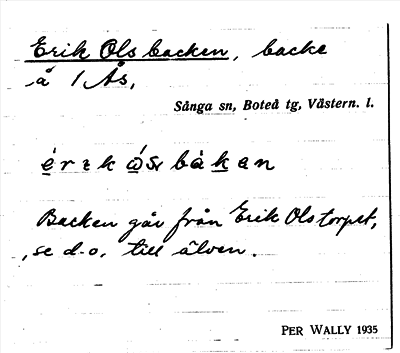 Erik Olsbacken, backe
å 1 Ås,
Sånga sn, Boteå tg, Västern. l.
érɪk ósbàkan
Backen går från Erik Olstorpet,
se d.o. till älven.
PER WALLY 1935